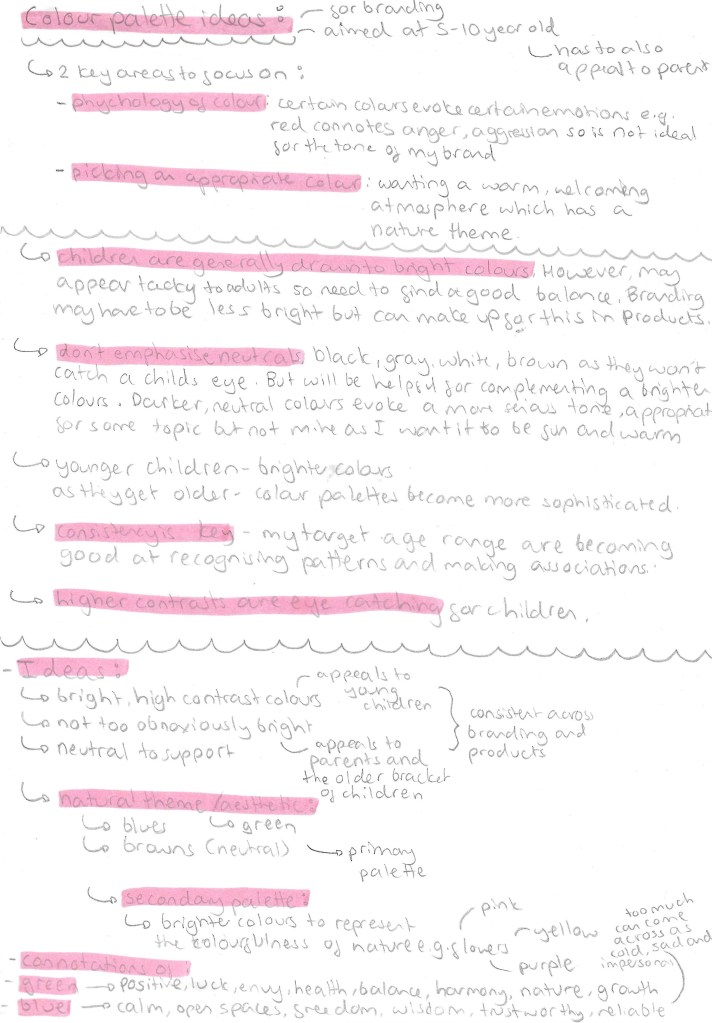 Colour palette ideas :
for branding
aimed at 5-10 year old
has to also
appeal to parent
2 key areas to focus on :
- phychology of colour : certain colours evoke certain emotions e.g.
red connotes anger, aggression so is not ideal
for the tone of my brand
- picking an appropriate colour : wanting a warm, welcoming
atmosphere which has a
nature theme.
children are generally drawn to bright colours. However, may
appear tacky to adults so need to find a good balance. Branding
may have to be less bright but can make up for this in products.
don't emphasise neutrals, black, gray, white, brown as they won't
catch a childs eye. But will be helpful for complementing a brighter
colours. Darker, neutral colours evoke a more serious tone, appropriat
for some topic but not mine as I want it to be fun and warm
younger children - brighter colours
as they get older - colour palettes become more sophisticated.
consistency is key - my target age range are becoming
good at recognising patterns and making associations.
higher contrasts are eye catching for children.
- Ideas :
bright, high contrast colours
appeals to
young
children
not too obnoxiously bright
neutral to support
appeals to
parents and
the older bracket
of children
consistent across
branding and
products
natural theme / aesthetic :
blues
green
browns (neutral)
primary
palette
secondary palette :
brighter colours to represent
the colourfulness of nature e.g. flowers
pink
yellow
purple
too much
can come
across as
cold, sad and
impersonal
- connotations of :
- green → positive, luck, envy, health, balance, harmony, nature, growth
- blue → calm, open spaces, freedom, wisdom, trustworthy, reliable